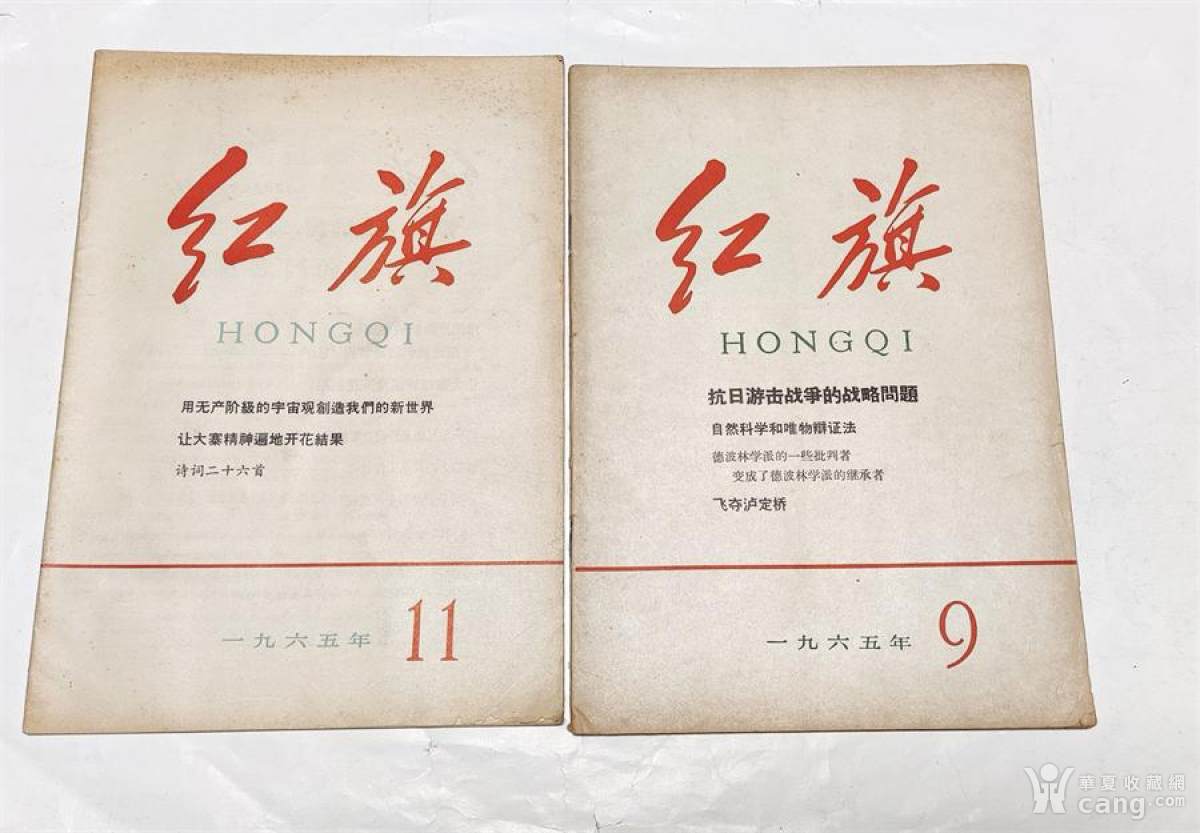 红旗
HONGQI
用无产阶級的宇宙观創造我們的新世界
让大寨精神遍地开花結果
诗词二十六首
一九六五年 11
红旗
HONGQI
抗日游击战爭的战略問題
自然科学和唯物辯证法
德波林学派的一些批判者
变成了德波林学派的继承者
飞夺泸定桥
一九六五年 9
華夏收藏網
cang.com